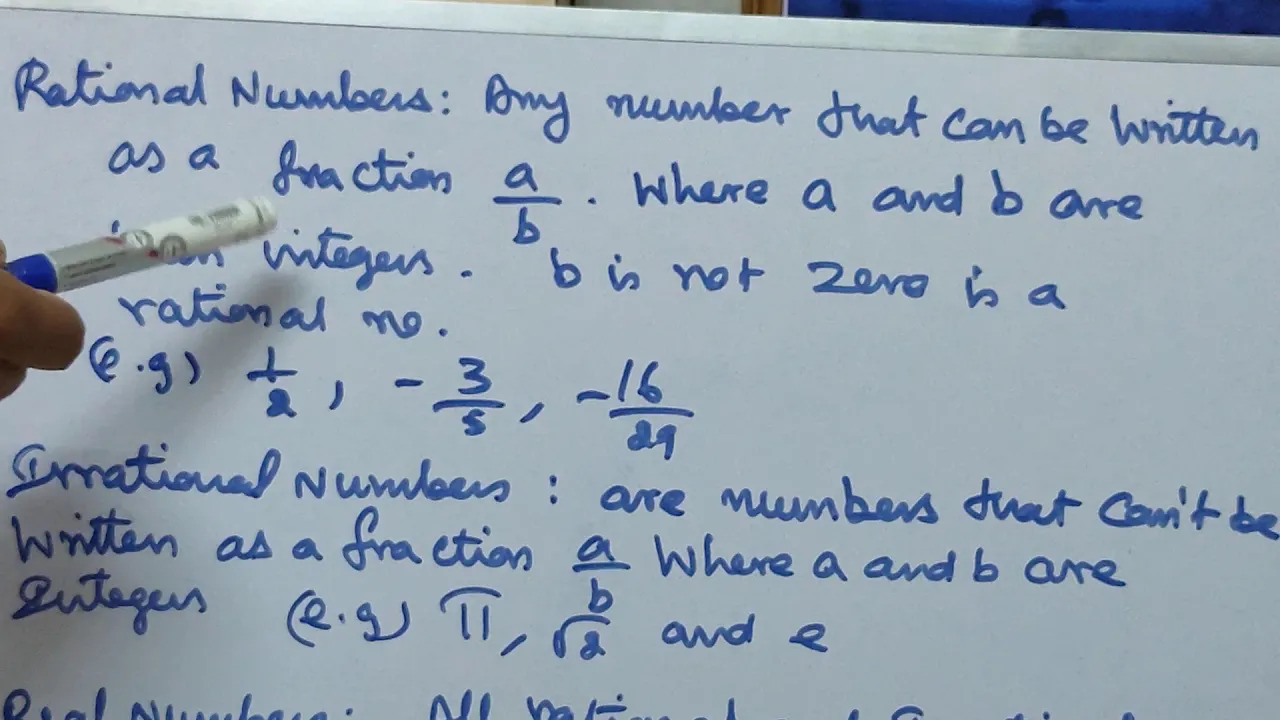 Rational Numbers: Any number that can be written
as a fraction a/b. Where a and b are
integers. b is not zero is a
rational no.
(e.g) 1/2, -3/5, -16/29
Irrational Numbers: are numbers that can't be
written as a fraction a/b where a and b are
Integers (e.g) π, √2 and e
Real Numbers: All rational and